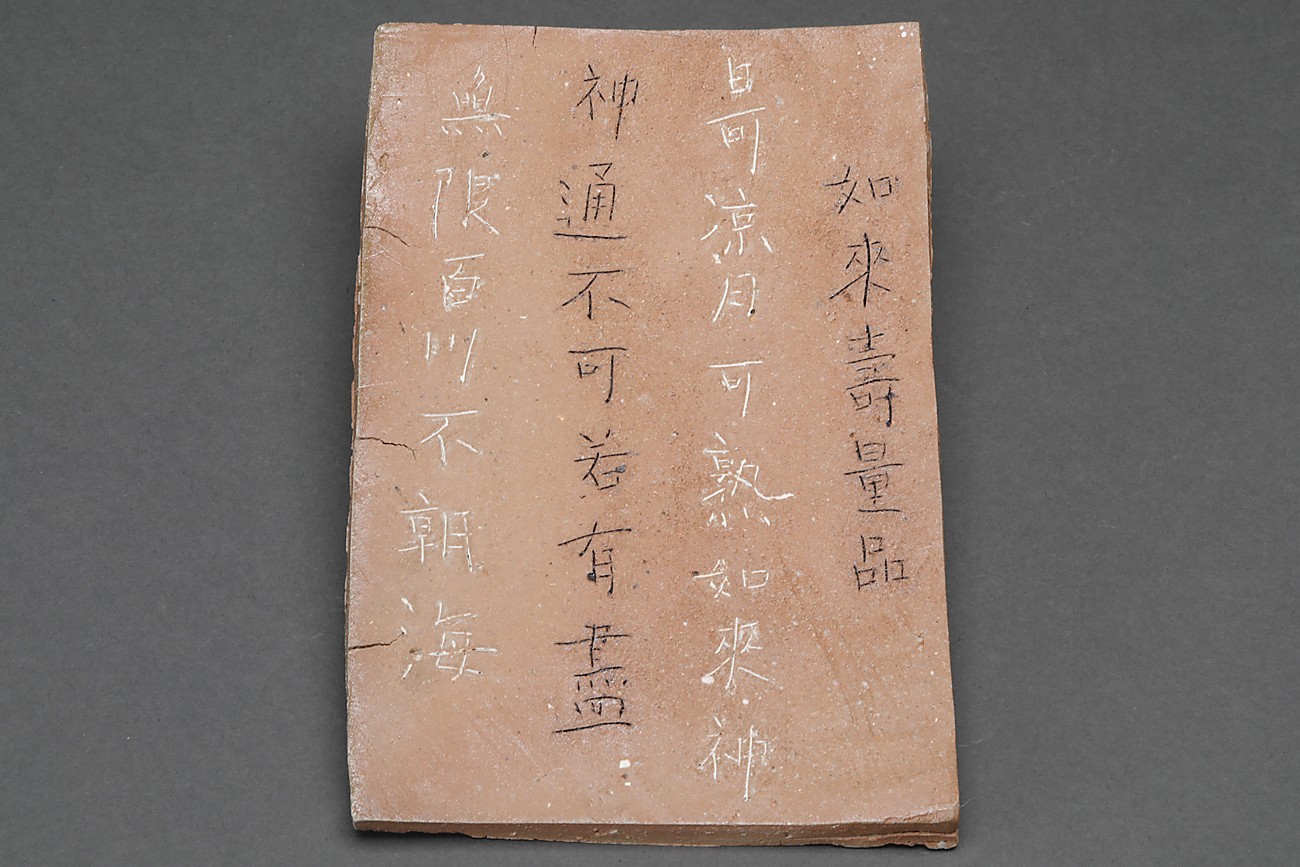 如來壽量品
日可凉月可熟如來神
神通不可若有盡
無限百川不朝海